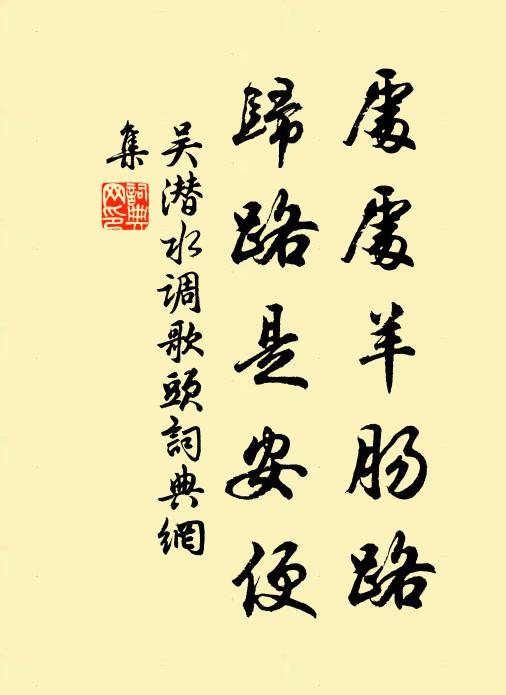 處處羊肠路
歸路是安便
吴潜水调歌頭詞典網
集
詞典
网印